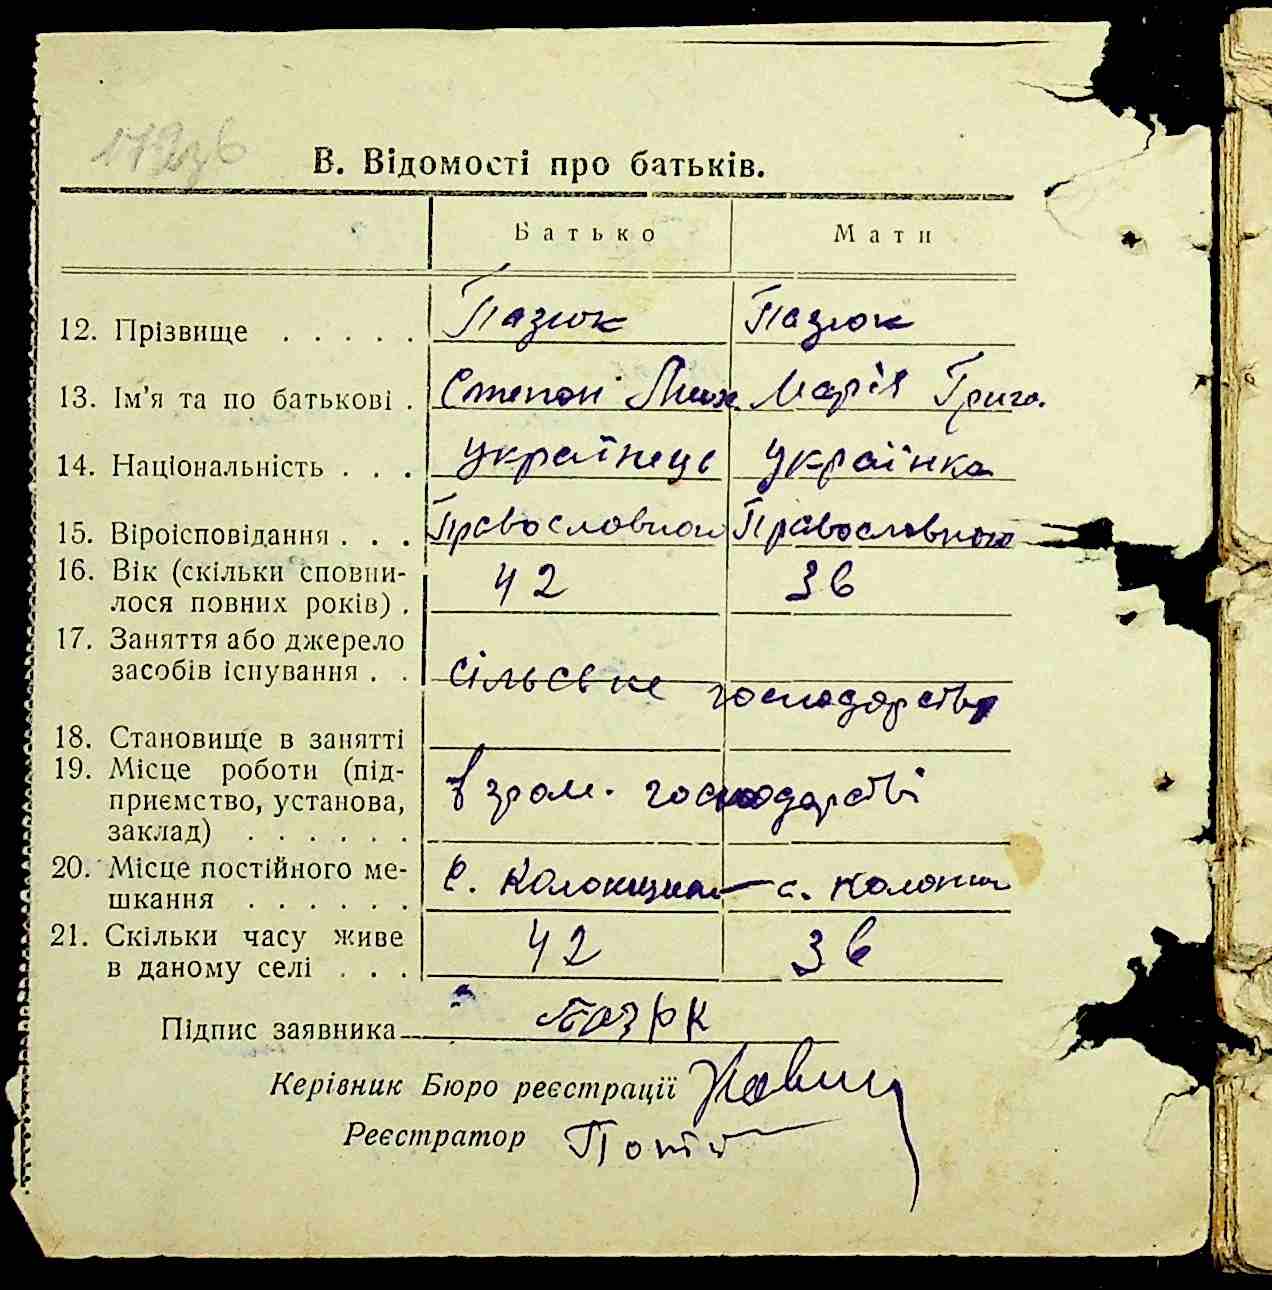 В. Відомості про батьків.
Батько Мати
12. Прізвище . . . . . Пазюк Пазюк
13. Ім'я та по батькові . Степан Мих. Марія Григо.
14. Національність . . . Українець Українка
15. Віроісповідання . . . Православною Православною
16. Вік (скільки сповни-
лося повних років) . 42 36
17. Заняття або джерело
засобів існування . . сільське господарство
18. Становище в занятті
19. Місце роботи (під-
приємство, установа, в гром. господарстві
заклад) . . . . . .
20. Місце постійного ме-
шкання . . . . . . с. — с.
21. Скільки часу живе
в даному селі . . . 42 36
Підпис заявника Пазюк
Керівник Бюро реєстрації
Реєстратор